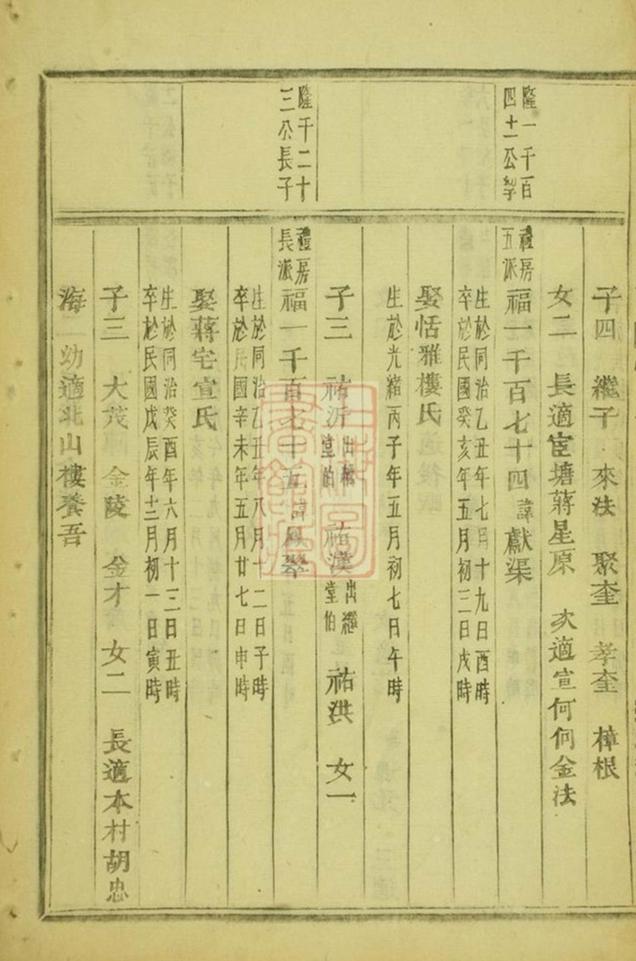 子四 繼子 來法 聚奎 孝奎 樟根
女二 長適宦塘蔣星原 次適宣何何金法
隆一千百
四十一公
禮房
五派
福一千百七十四諱獻渠
生於同治乙丑年七月十九日酉時
卒於民國癸亥年五月初三日戌時
娶恬雅樓氏
生於光緒丙子年五月初七日午時
子三 祐沂 出繼堂伯 祐漢 出繼堂伯 祐洪 女一
隆千二十
三公長子
禮房
長派
福一千百七十五諱鳳翠
生於同治乙丑年八月十二日子時
卒於民國辛未年五月廿七日申時
娶蔣宅宣氏
生於同治癸酉年六月十三日丑時
卒於民國戊辰年十二月初一日寅時
子三 大茂 金陵 金才 女二 長適本村胡忠
海 幼適北山樓養吾